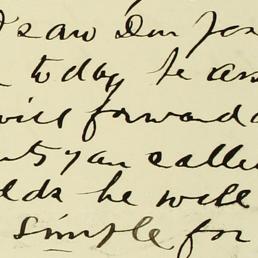 I saw Don Jos
today he ass
will forward a
nts you calle
elds he will
simple for